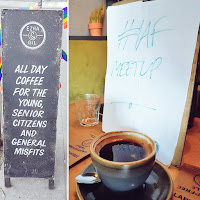 ALL DAY
COFFEE
FOR THE
YOUNG,
SENIOR
CITIZENS
AND
GENERAL
MISFITS
#IAF
MEETUP